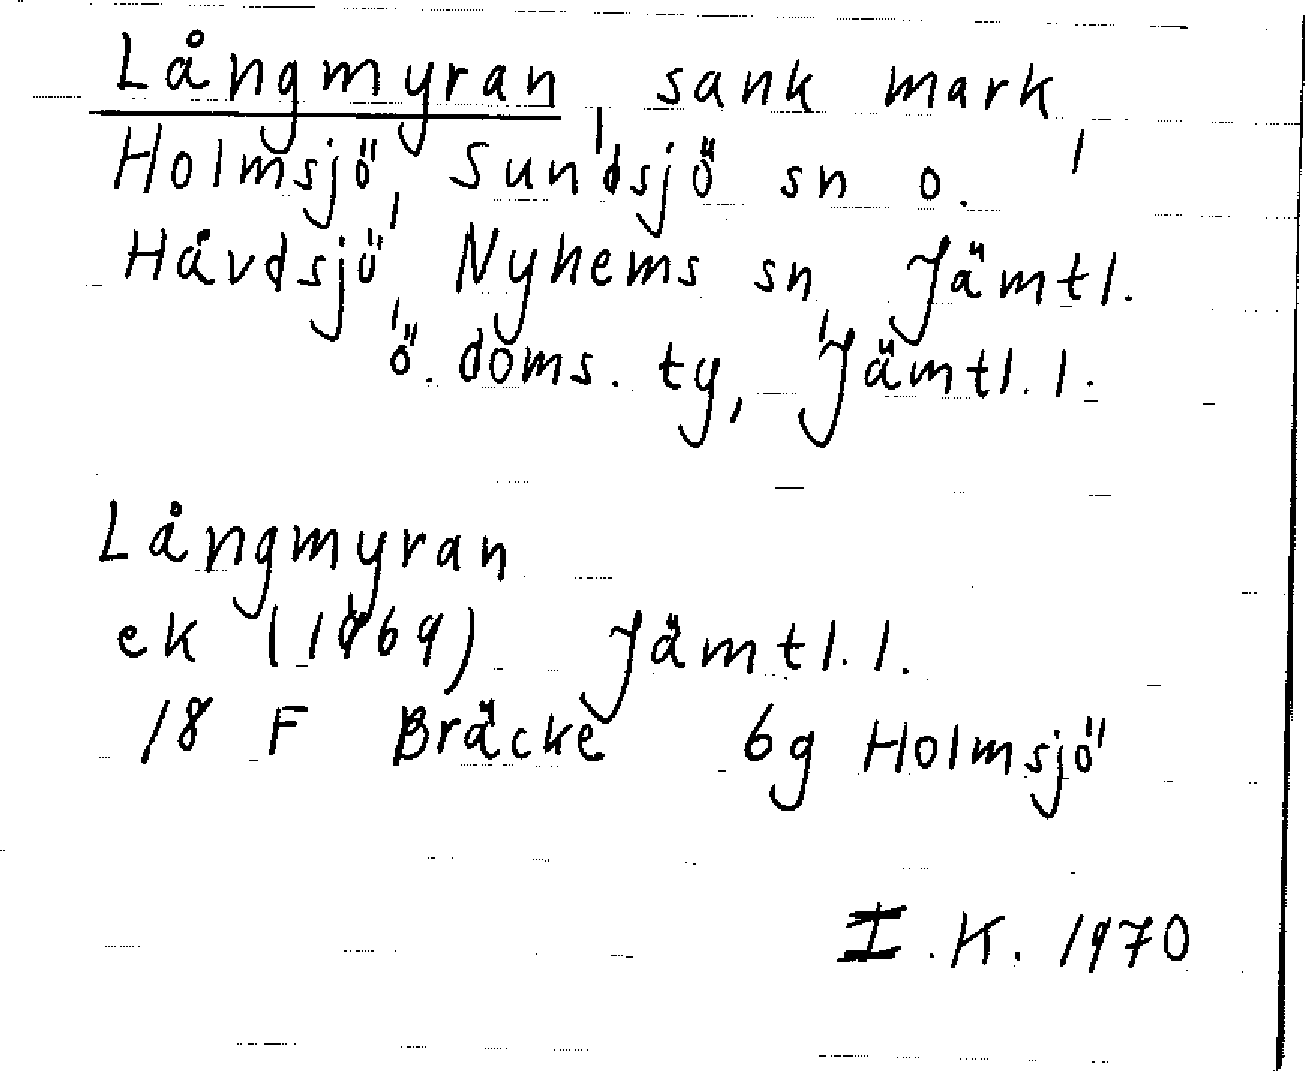 Långmyran, sank mark,
Holmsjö, Sundsjö sn o.
Håvdsjö, Nyhems sn, Jämtl.
ö. doms. tg, Jämtl. l.
Långmyran
ek (1969) Jämtl. l.
18 F Bräcke 6g Holmsjö
I.K. 1970